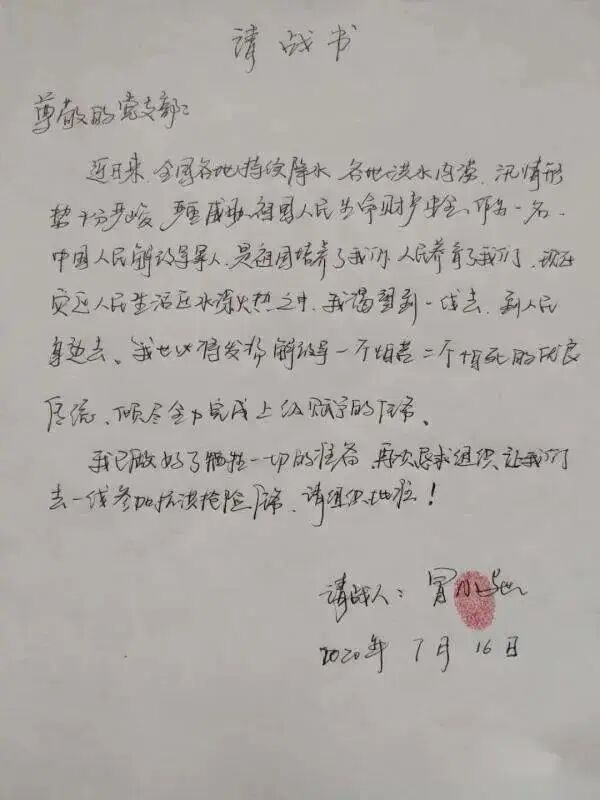 请战书
尊敬的党支部：
近日来，全国各地持续降水，各地洪水内涝，汛情形
势十分严峻，严重威胁祖国人民生命财产安全，作为一名
中国人民解放军军人，是祖国培养了我们，人民养育了我们，现在
灾区人民生活在水深火热之中，我渴望到一线去，到人民
身边去、我也必将发扬解放军一不怕苦二不怕死的优良
传统、倾尽全力完成上级赋予的任务、
我已做好了牺牲一切的准备，再次恳求组织让我们
去一线参加抗洪抢险任务，请组织批准！
请战人：冒
2020年 7月 16日